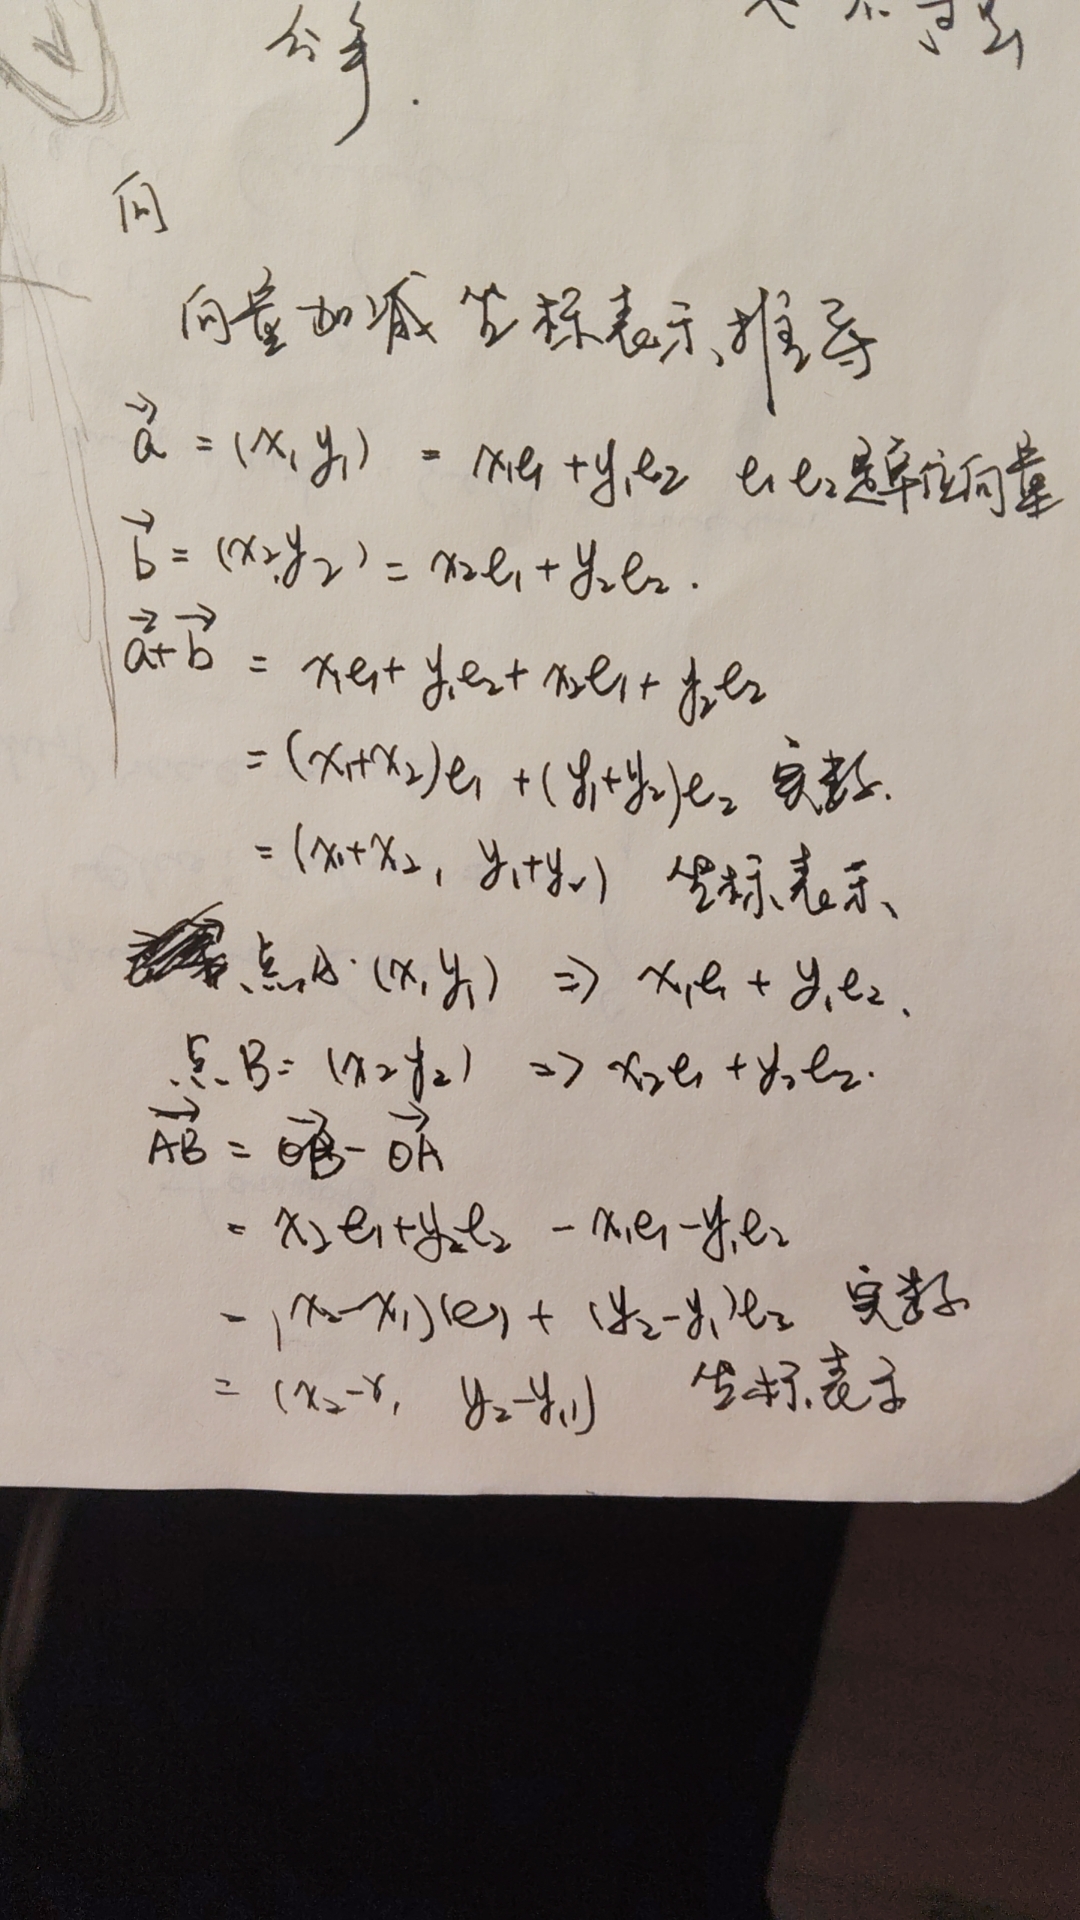 向
向量加减坐标表示推导
a⃗ = (x₁ y₁) = x₁e₁ + y₁e₂ e₁ e₂是单位向量
b⃗ = (x₂,y₂) = x₂e₁ + y₂e₂.
a⃗+b⃗ = x₁e₁ + y₁e₂ + x₂e₁ + y₂e₂
= (x₁+x₂)e₁ + (y₁+y₂)e₂ 实数.
= (x₁+x₂, y₁+y₂) 坐标表示
点A·(x₁ y₁) ⇒ x₁e₁ + y₁e₂.
点B = (x₂ y₂) ⇒ x₂e₁ + y₂e₂.
AB⃗ = OB⃗ - OA⃗
= x₂e₁+y₂e₂ - x₁e₁ - y₁e₂
= (x₂-x₁)(e₁ + (y₂-y₁)e₂ 实数
= (x₂-x₁ y₂-y₁) 坐标表示